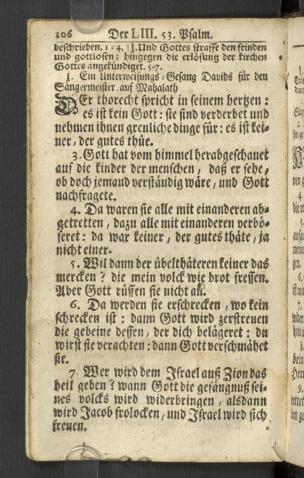 106 Der LIII. 53. Psalm.
beschrieben. 1-4. II. Und Gottes straffe den feinden
und gottlosen; hingegen die erlösung der kirchen
Gottes angekündiget. 5-7.
1. Ein Unterweisungs-Gesang Davids für den
Sängermeister auf Mahalath
DEr thorecht spricht in seinem hertzen:
es ist kein Gott: sie sind verderbet und
nehmen ihnen greuliche dinge für: es ist kei-
ner, der gutes thüe.
3. Gott hat vom himmel herabgeschauet
auf die kinder der menschen, daß er sehe,
ob doch jemand verständig wäre, und Gott
nachfragete.
4. Da waren sie alle mit einanderen ab-
getretten, dazu alle mit einanderen verbö-
seret: da war keiner, der gutes thäte, ja
nicht einer.
5. Wil dann der übelthäteren keiner das
mercken? die mein volck wie brot fressen.
Aber Gott rüffen sie nicht an.
6. Da werden sie erschrecken, wo kein
schrecken ist: dann Gott wird zerstreuen
die gebeine dessen, der dich belägeret: du
wirst sie verachten: dann Gott verschmähet
sie.
7. Wer wird dem Israel auß Zion das
heil geben? wann Gott die gefangnuß sei-
nes volcks wird widerbringen, alsdann
wird Jacob frolocken, und Israel wird sich
freuen.